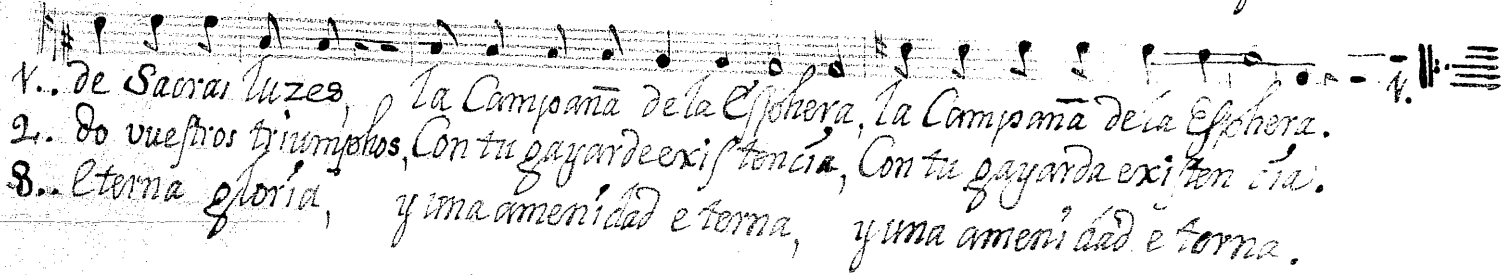 1.. de Sacras luzes, la Campaña de la Esphera, la Campaña de la Esphera.
2.. do vuestros triumphos, Con tu gayarde existencia, Con tu gayarda existencia.
8.. eterna gloria, y una amenidad eterna, y una amenidad eterna.